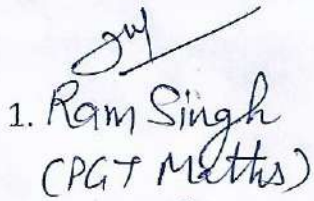 1. Ram Singh
(PGT Maths)